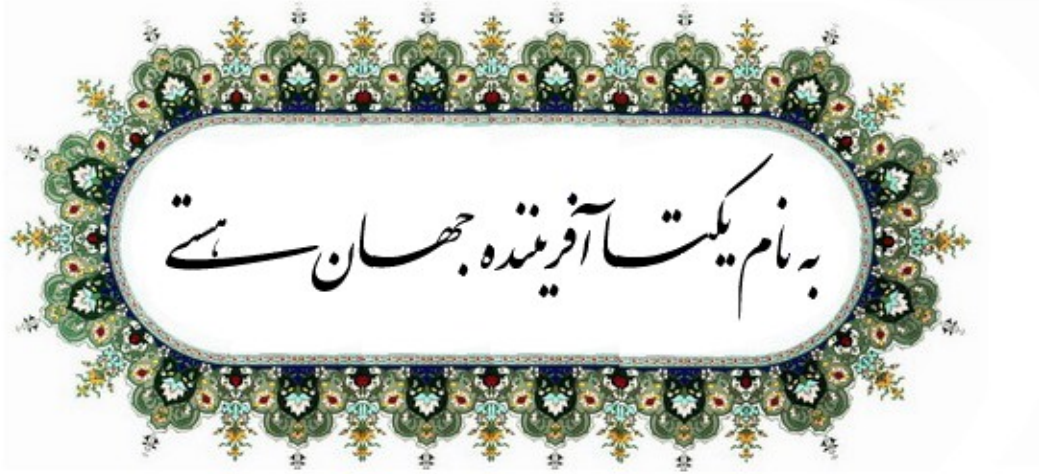 به نام یکتا آفریننده جهان هستی